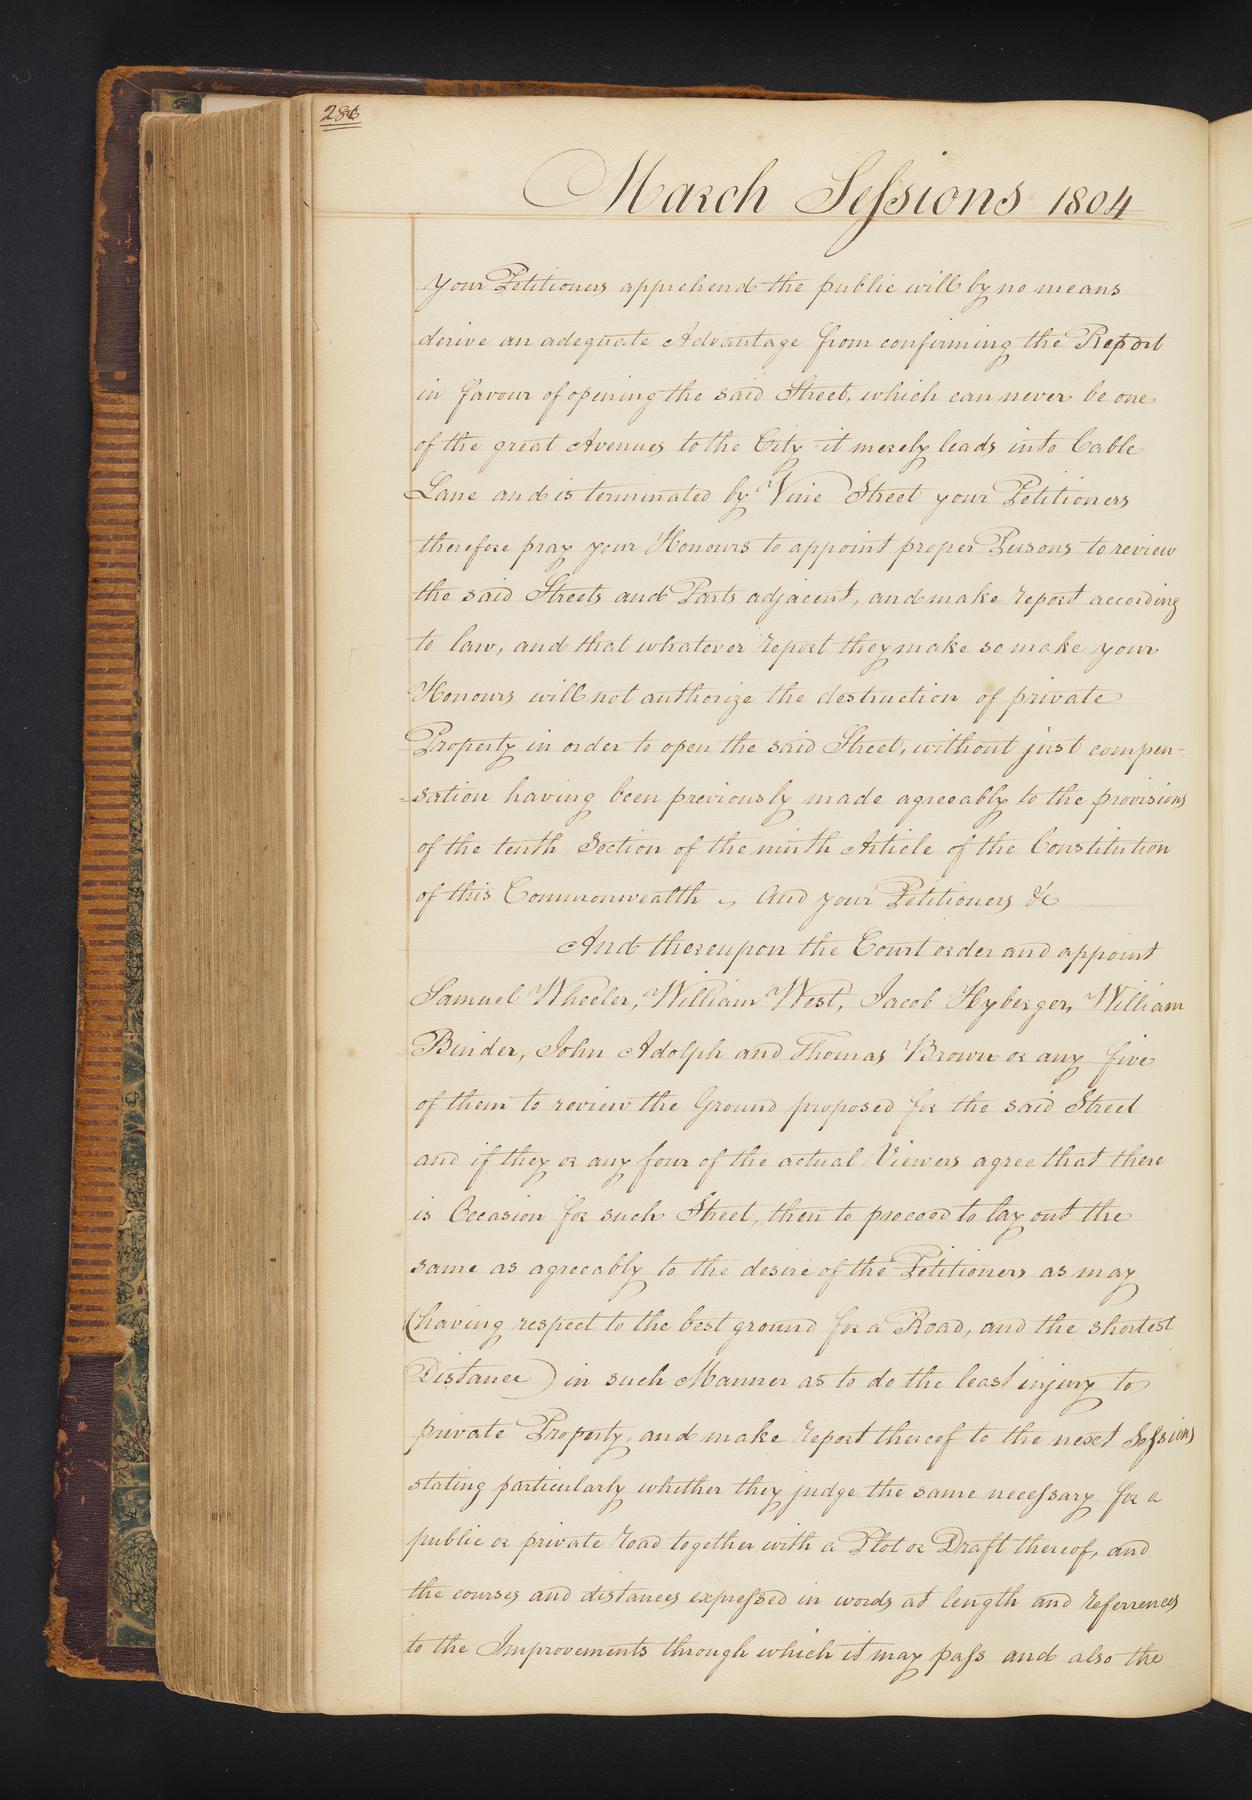 286
March Sessions 1804
your Petitioners apprehend the public will by no means
derive an adequate Advantage from confirming the Report
in favour of opening the said Street, which can never be one
of the great Avenues to the City it merely leads into Cable
Lane and is terminated by Vine Street your Petitioners
therefore pray your Honours to appoint proper Persons to review
the said Streets and Parts adjacent, and make report according
to law, and that whatever report they make so make your
Honours will not authorize the destruction of private
Property in order to open the said Street, without just compen-
-sation having been previously made agreeably to the provisions
of the tenth Section of the ninth Article of the Constitution
of this Commonwealth ~ And your Petitioners &c
And thereupon the Court order and appoint
Samuel Wheeler, William West, Jacob Hyberger, William
Binder, John Adolph and Thomas Brown or any five
of them to review the Ground proposed for the said Street
and if they or any four of the actual Viewers agree that there
is Occasion for such Street, then to proceed to lay out the
same as agreeably to the desire of the Petitioners as may
(having respect to the best ground for a Road, and the shortest
Distance) in such Manner as to do the least injury to
private Property, and make report thereof to the next Sessions
stating particularly whether they judge the same necessary for a
public or private road together with a Plot or Draft thereof, and
the courses and distances expressed in words at length and referrences
to the Improvements through which it may pass and also the